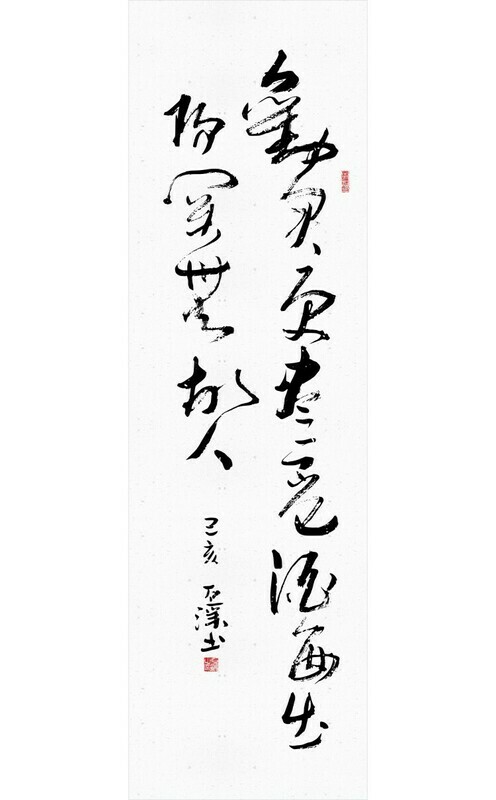 勸君更盡一盃酒西出
陽關無故人
己亥 石溪書